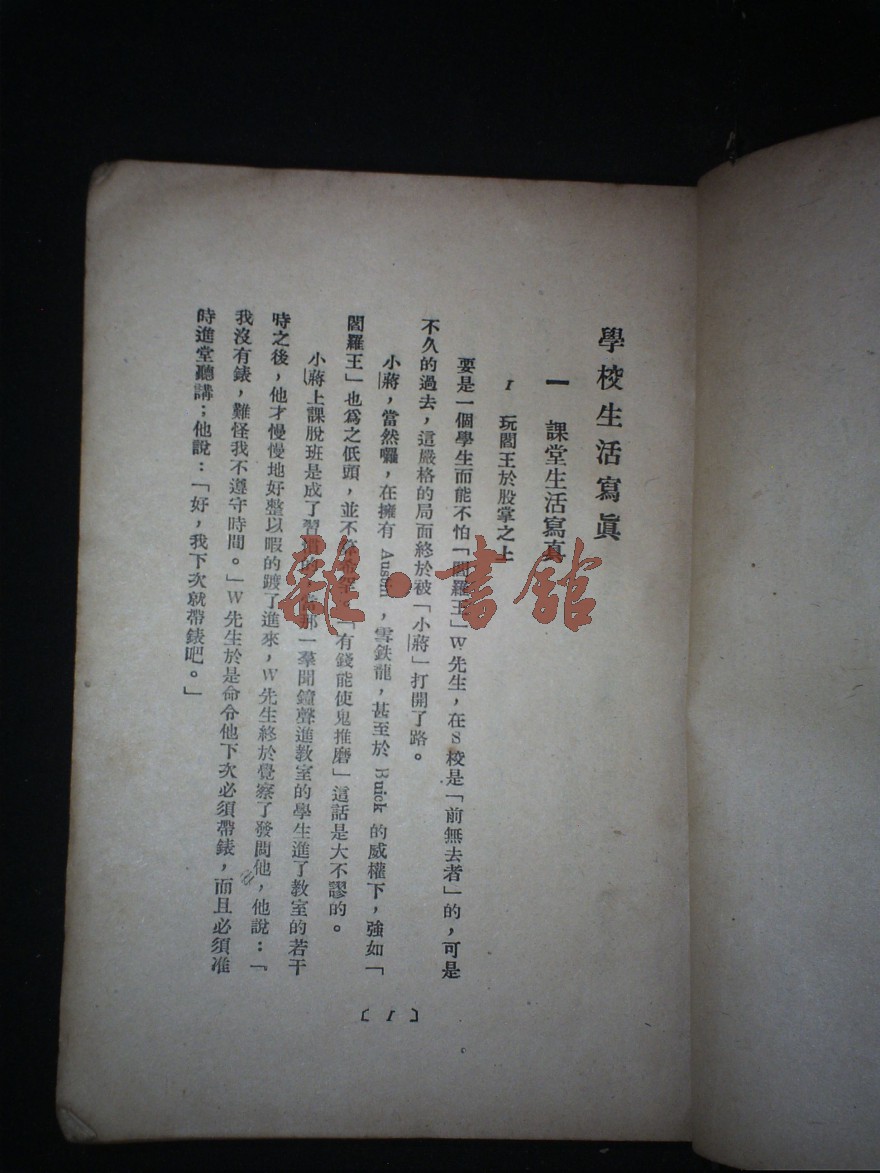 學校生活寫眞
一　課堂生活寫真
I　玩閻王於股掌之上
要是一個學生而能不怕「閻羅王」W先生，在S校是「前無去者」的，可是
不久的過去，這嚴格的局面終於被「小蔣」打開了路。
小蔣，當然囉，在擁有 Austin，雪鉄龍，甚至於 Buick 的威權下，強如「
閻羅王」也爲之低頭，並不「有錢能使鬼推磨」這話是大不謬的。
小蔣上課脫班是成了習慣的，那一羣聞鐘聲進教室的學生進了教室的若干
時之後，他才慢慢地好整以暇的踱了進來，W先生終於覺察了發問他，他說：「
我沒有錶，難怪我不遵守時間。」W先生於是命令他下次必須帶錶，而且必須准
時進堂聽講；他說：「好，我下次就帶錶吧。」
〔I〕
雜·書館